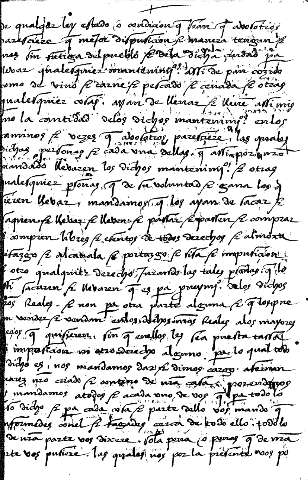 de qualquier ley estado o condicion que sean q a vosotros
paresciere q mejor dispusicion e manera tengan e
mes sin fatiga del pueblo se de la dicha cibdad pa
llevar qualesquier mantenimos. assi de pan cozido
como de vino e carne e pescado e cevada e otras
qualesquier cosas. ayan de llevar e lleve assi mis
mo la cantidad delos dichos mantenimos en los
caminos e vezes q a vosotros paresciere. las quales
dichas personas e cada una dellas. q assi por nro
mandado llevaren los dichos mantenimos e otras
qualesquier psonas. q de su voluntad e gana los q
sieren llevar, mandamos. q los ayan de sacar e
saquen e llevar e lleven e passar e passen e comprar
e compren libres e esentos de todos derechos e almoxa
rifazgo e alcavala e portazgo e sisa e impusicion.
e otro qualquier derecho. jurando las tales psonas. q lo
si sacaren e llevaren q es pa proveymo delos dichos
nros Reales. e non pa otra parte alguna e q los pne
n vender e vendan enlos dichos nros Reales alos mayores
precios q quisieren. son q enellos les sea puesta tassa
e imposicion ni otro derecho alguno. pa lo qual todo
dicho es, nos mandamos dar e dimos cargo a fernan
nro criado e contino de nra casa.
e mandamos a todos e a cada uno de vos q pa todo lo
so dicho e pa cada cosa e parte dello vos. mando q
conformedes conel e fagades cerca de todo ello. todo lo
de nra parte vos dixere. sola pena o penas q de nra
parte vos pusiere. las quales nos por la presente vos po